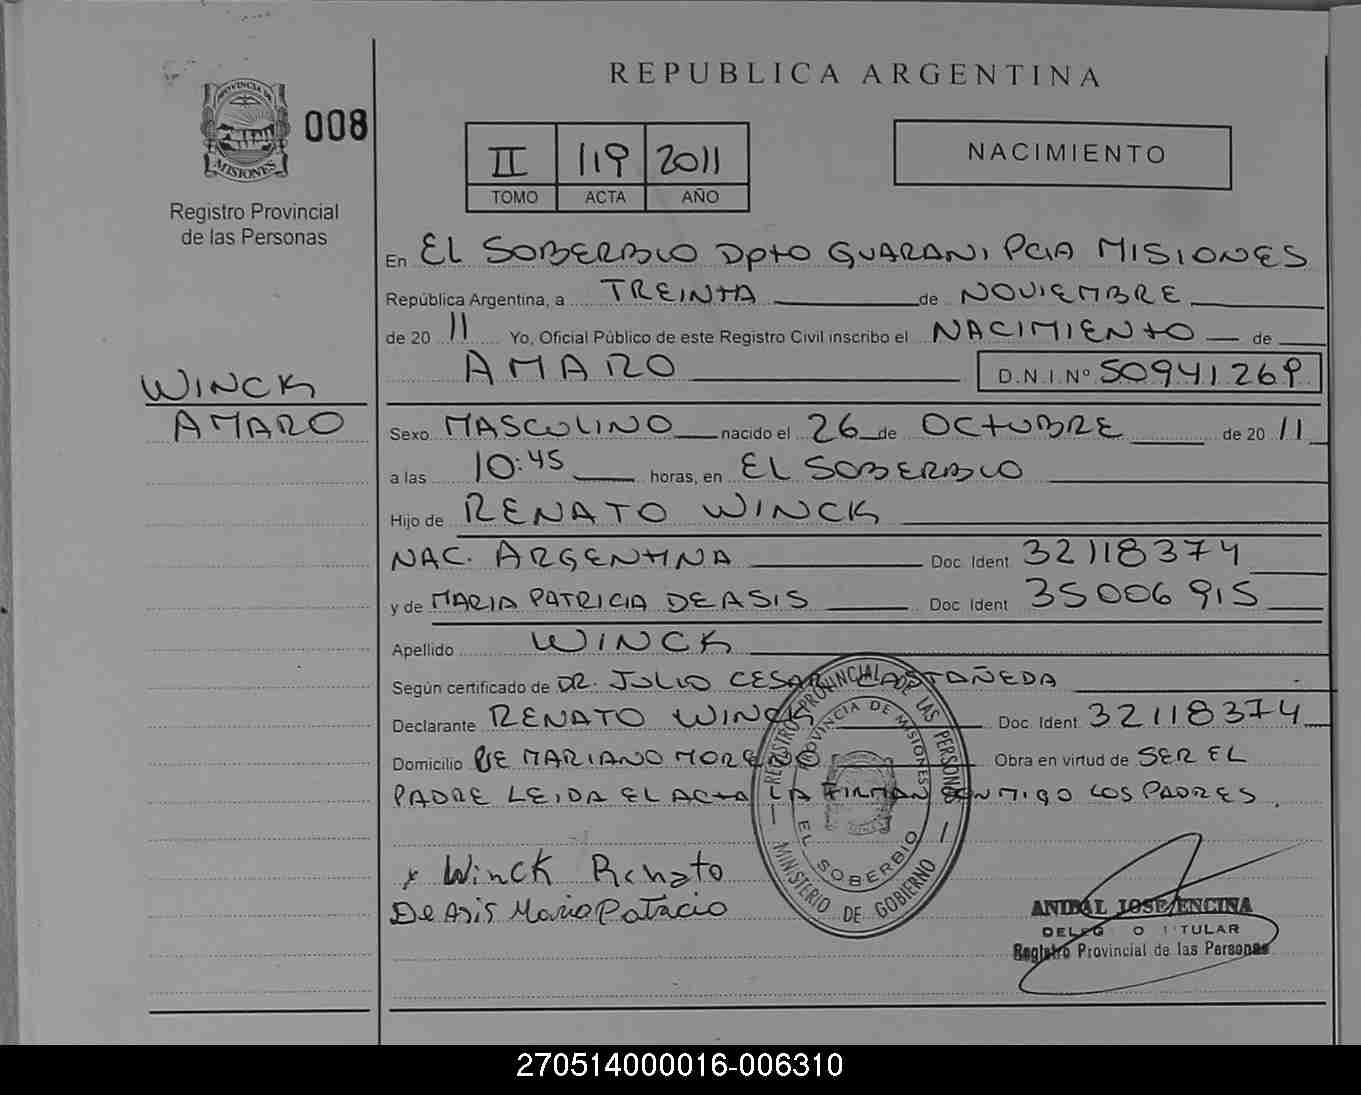 REPUBLICA ARGENTINA
PROVINCIA DE
MISIONES
008
Registro Provincial
de las Personas
II 119 2011
TOMO ACTA AÑO
NACIMIENTO
En EL SOBERBIO Dpto GUARANI PCIA MISIONES
República Argentina, a TREINTA de NOVIEMBRE
de 20 11 Yo, Oficial Público de este Registro Civil inscribo el NACIMIENTO de
AMARO D.N.I.Nº 50941269
WINCK
AMARO
Sexo MASCULINO nacido el 26 de OCTUBRE de 20 11
a las 10:45 horas, en EL SOBERBIO
Hijo de RENATO WINCK
NAC. ARGENTINA Doc. Ident 32118374
y de MARIA PATRICIA DE ASIS Doc. Ident 35006915
Apellido WINCK
Según certificado de DR. JULIO CESAR CASTAÑEDA
Declarante RENATO WINCK Doc. Ident 32118374
Domicilio PJE MARIANO MORENO Obra en virtud de SER EL
PADRE LEIDA EL ACTA LA FIRMAN CONMIGO LOS PADRES
REGISTRO PROVINCIAL DE LAS PERSONAS
PROVINCIA DE MISIONES
EL SOBERBIO
MINISTERIO DE GOBIERNO
x Winck Renato
De Asis Maria Patricia
ANIBAL JOSE ENCINA
DELEG O TITULAR
Registro Provincial de las Personas
270514000016-006310